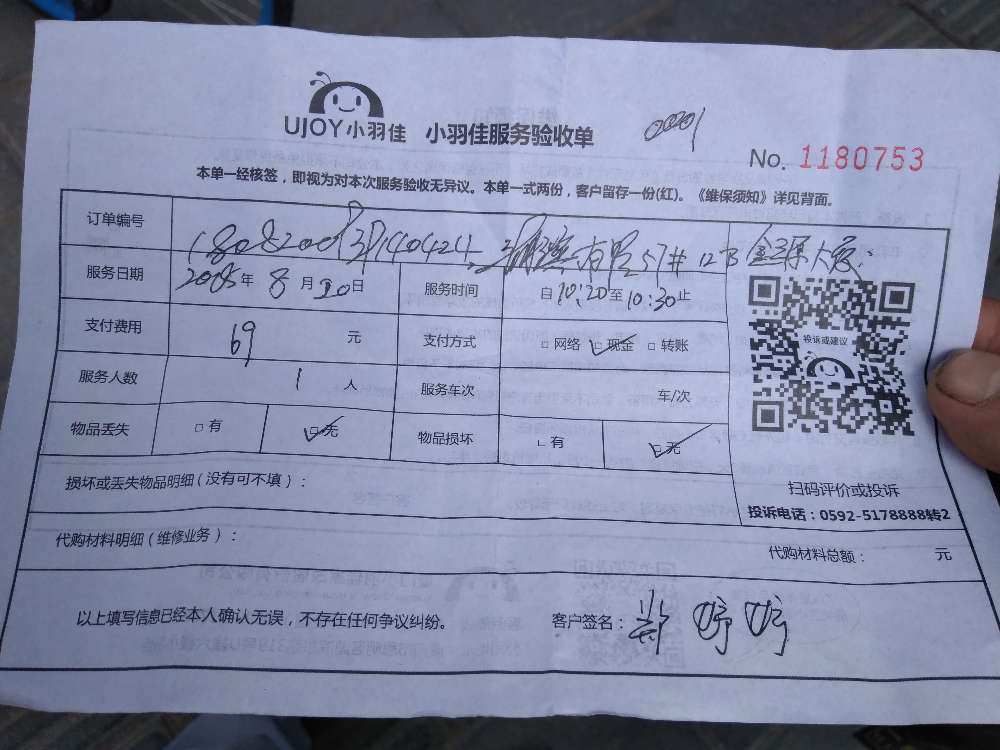 UJOY小羽佳 小羽佳服务验收单 00001
No. 1180753
本单一经核签，即视为对本次服务验收无异议。本单一式两份，客户留存一份(红)。《维保须知》详见背面。
订单编号
服务日期 2018年8月20日 服务时间 自10:20至10:30止
支付费用 69 元 支付方式 □网络 □现金 □转账
投诉或建议
服务人数 1 人 服务车次 车/次
物品丢失 □有 □无 物品损坏 □有 □无
损坏或丢失物品明细(没有可不填)：
扫码评价或投诉
投诉电话：0592-5178888转2
代购材料明细(维修业务)： 代购材料总额： 元
以上填写信息已经本人确认无误，不存在任何争议纠纷。 客户签名： 郑婷婷